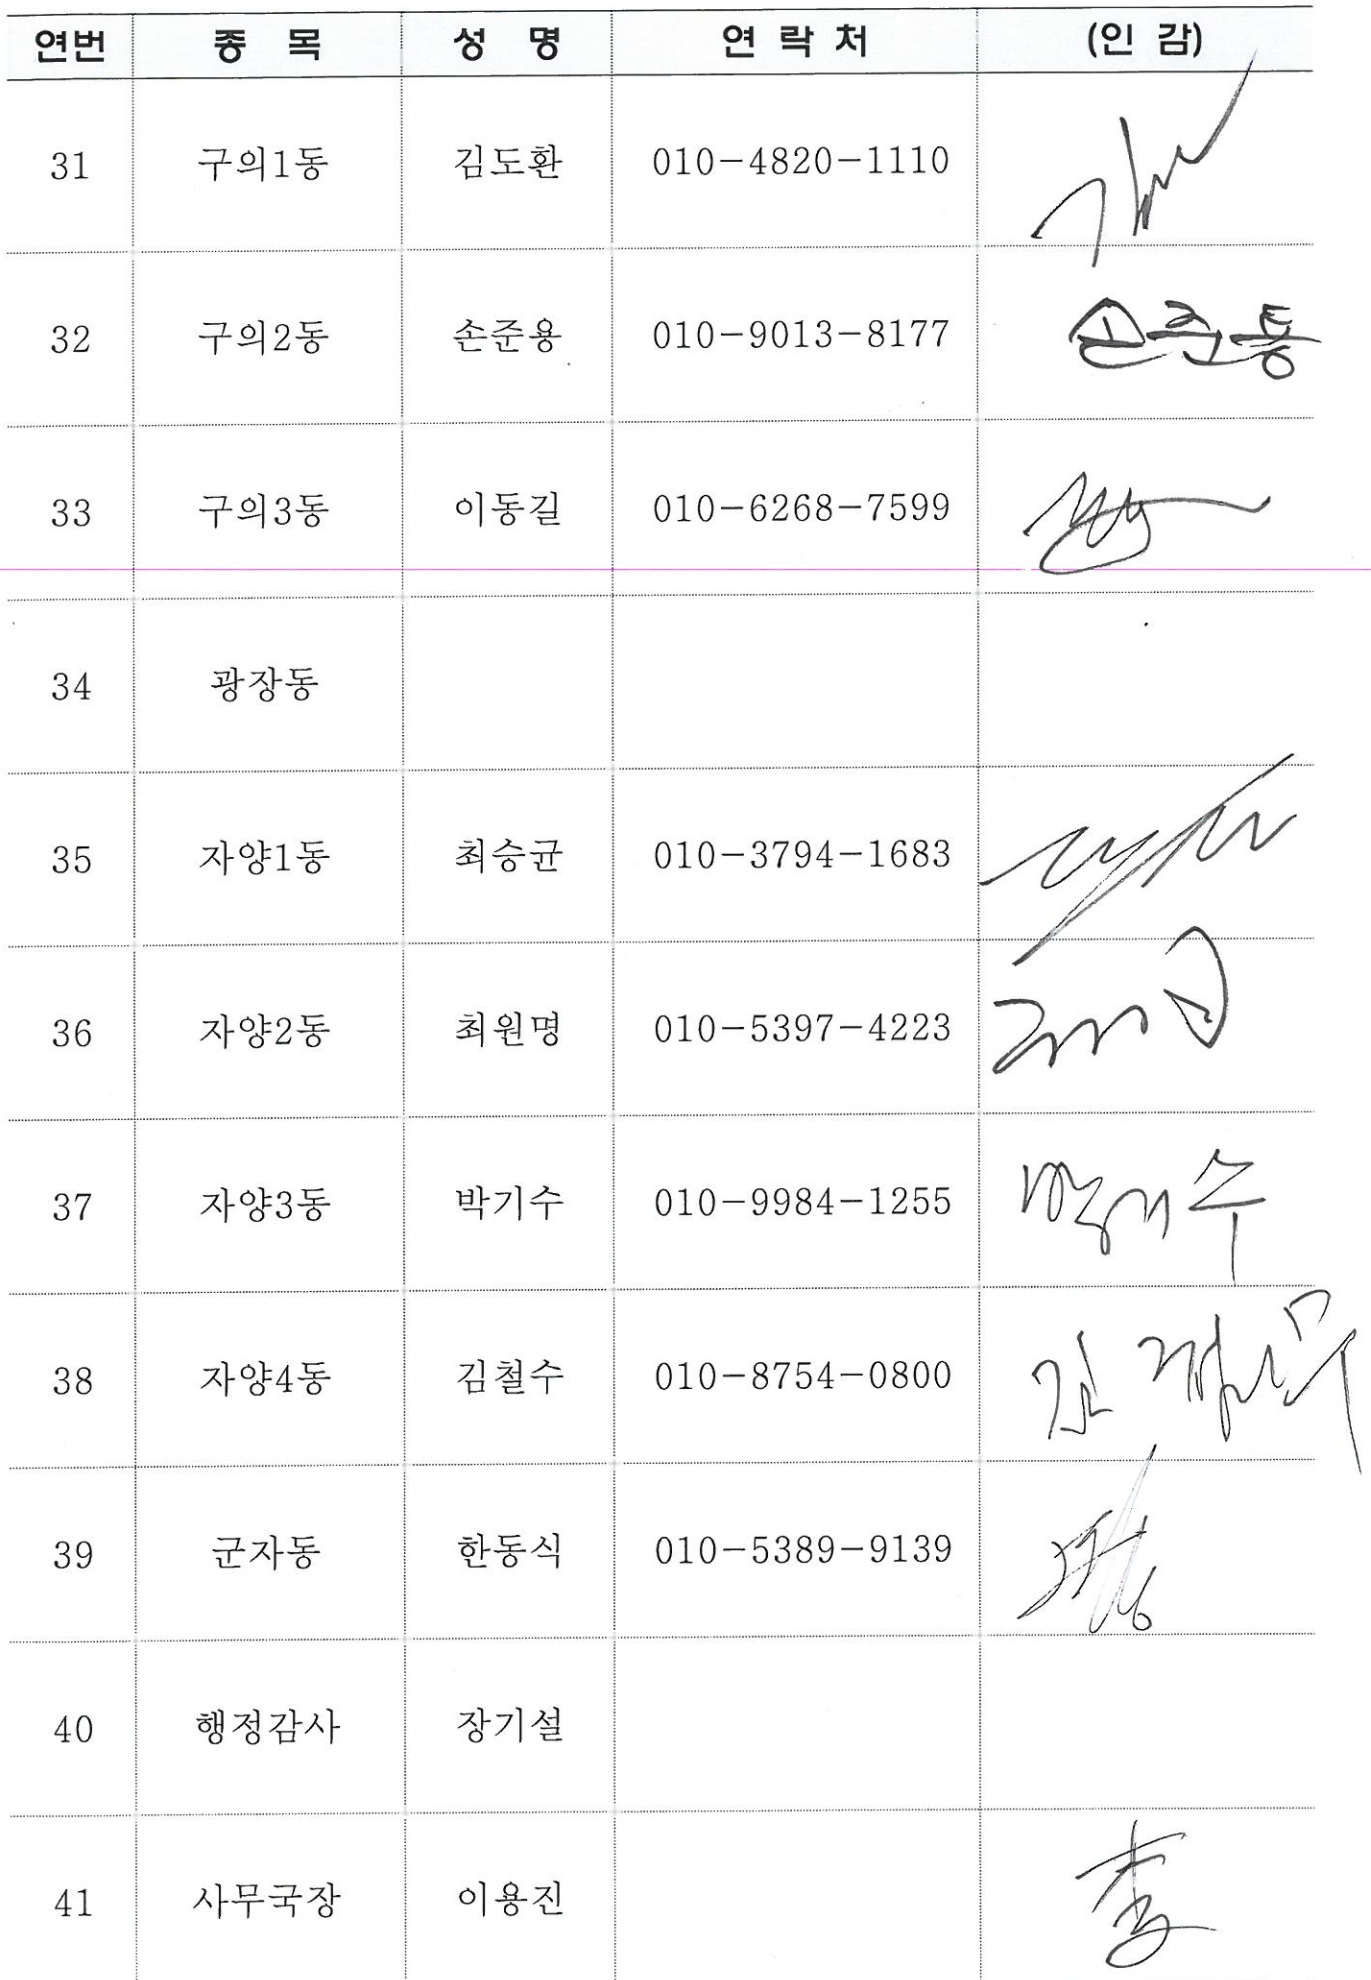 연번 종 목 성 명 연 락 처 (인 감)
31 구의1동 김도환 010-4820-1110
32 구의2동 손준용 010-9013-8177 손준용
33 구의3동 이동길 010-6268-7599
34 광장동
35 자양1동 최승균 010-3794-1683
36 자양2동 최원명 010-5397-4223
37 자양3동 박기수 010-9984-1255 박기수
38 자양4동 김철수 010-8754-0800
39 군자동 한동식 010-5389-9139
40 행정감사 장기설
41 사무국장 이용진 李